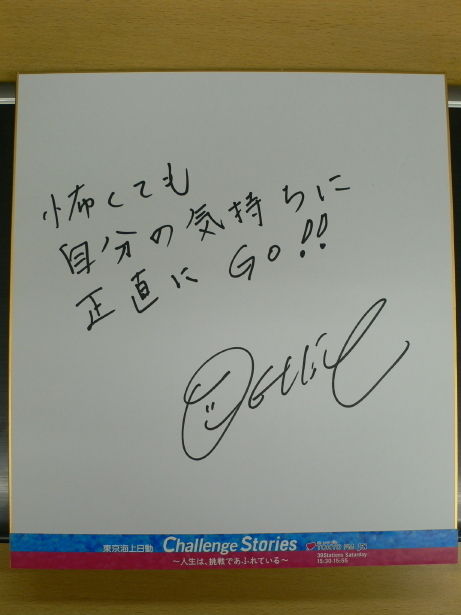 怖くても
自分の気持ちに
正直に GO!!
東京海上日動 Challenge Stories
TOKYO FM JFN
38Stations Saturday
15:30-15:55
～人生は、挑戦であふれている～